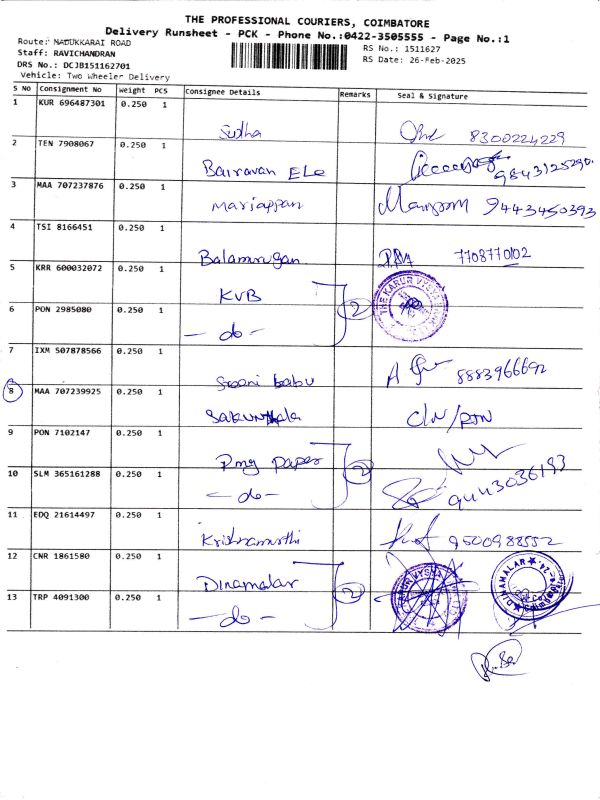 THE PROFESSIONAL COURIERS, COIMBATORE
Delivery Runsheet - PCK - Phone No.:0422-3505555 - Page No.:1
Route: MADUKKARAI ROAD
Staff: RAVICHANDRAN
DRS No.: DCJB151162701
Vehicle: Two Wheeler Delivery
RS No.: 1511627
RS Date: 26-Feb-2025
S No Consignment No Weight PCS Consignee Details Remarks Seal & Signature
1 KUR 696487301 0.250 1
Sudha 8300224229
2 TEN 7908067 0.250 1
Bairavan Ele 9843125290
3 MAA 707237876 0.250 1
Mariappan 9443450393
4 TSI 8166451 0.250 1
Balamurugan 7708770102
5 KRR 600032072 0.250 1
KVB 2 THE KARUR VYSYA
6 PON 2985080 0.250 1
- do -
7 IXM 507878566 0.250 1
Swani babu 8883966692
8 MAA 707239925 0.250 1
Sakunthala
9 PON 7102147 0.250 1
Pmg paper 2
10 SLM 365161288 0.250 1
- do - 9443036193
11 EDQ 21614497 0.250 1
Krishnamurthi 9500988552
12 CNR 1861580 0.250 1
Dinamalar 2 KARUR VYSYA DINAMALAR
13 TRP 4091300 0.250 1
- do -